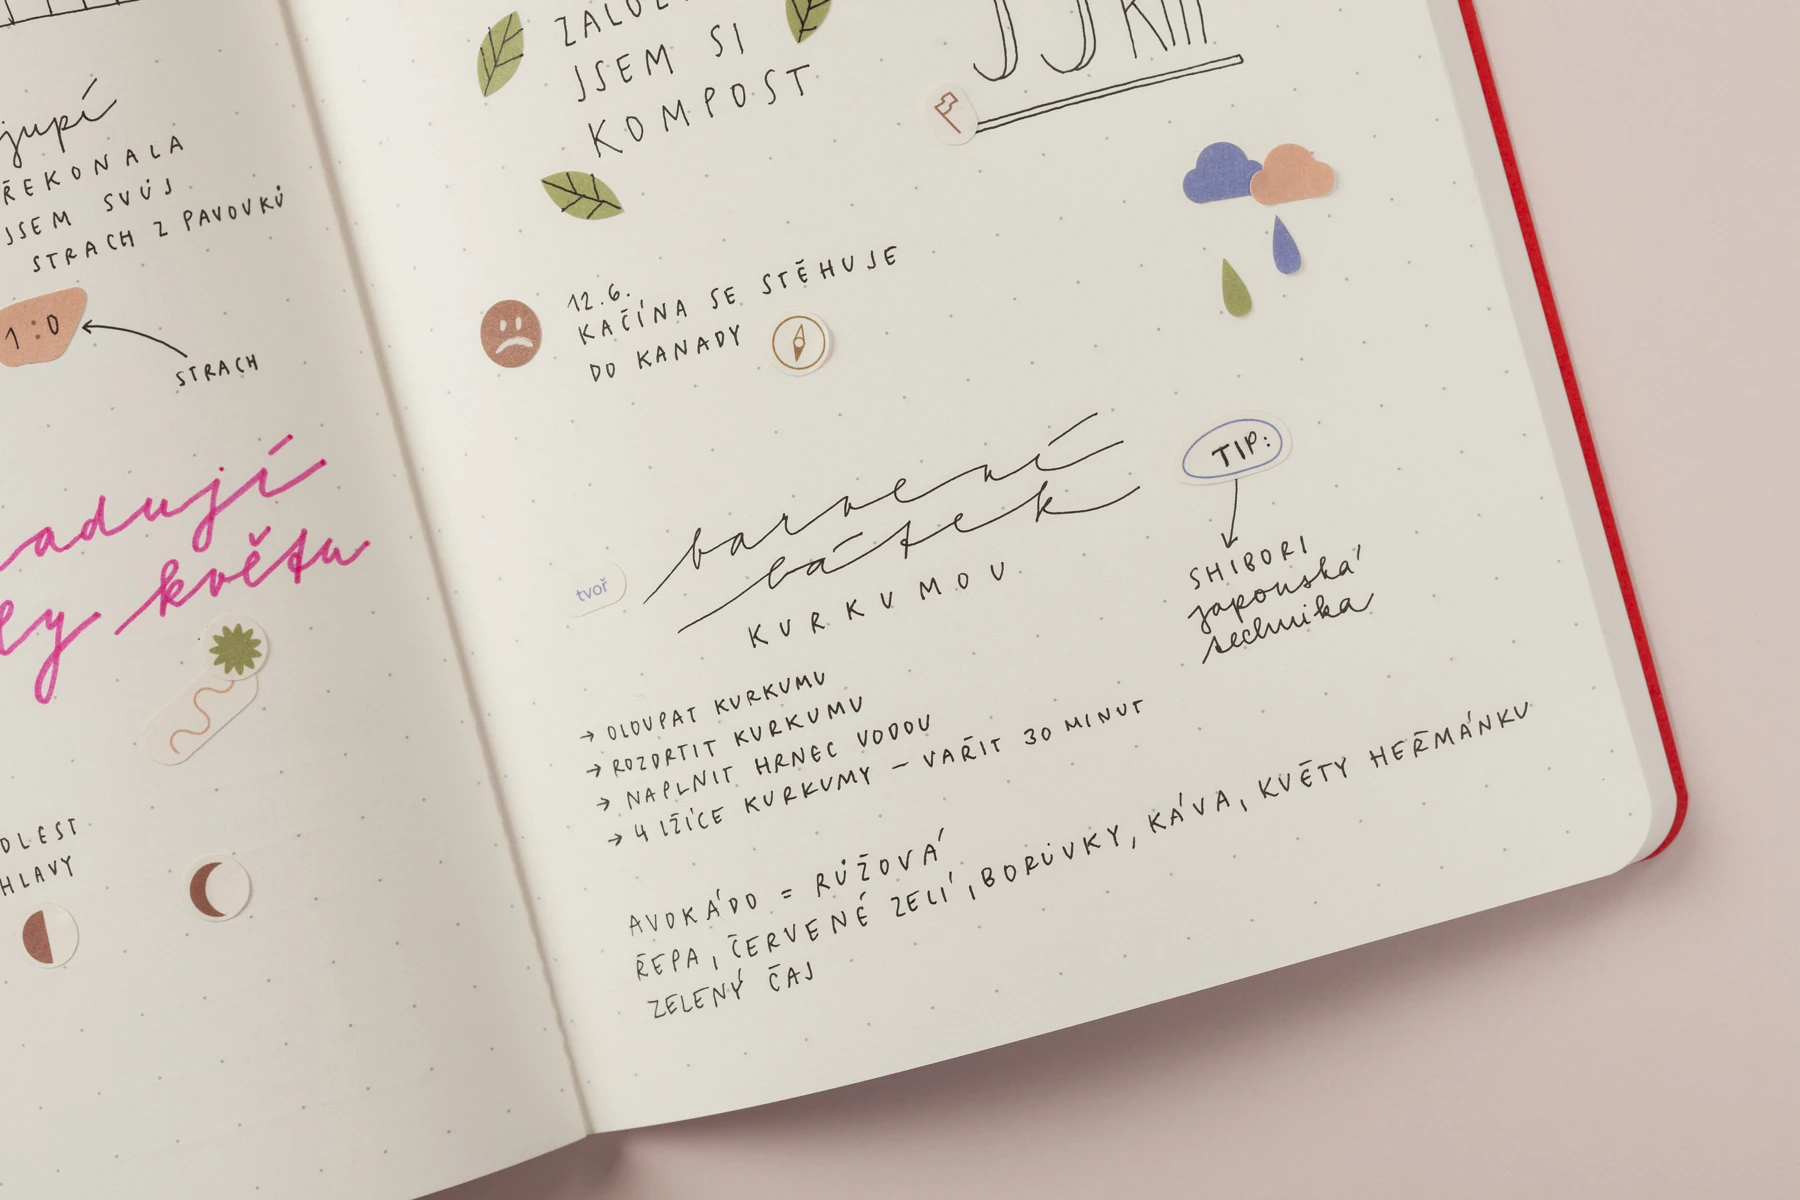 jupí
ŘEKONALA
JSEM SVŮJ
STRACH Z PAVOUKŮ
1:0
STRACH
adují
ly květu
OLEST
HLAVY
JSEM SI
KOMPOST
KM
12.6.
KAČÍNA SE STĚHUJE
DO KANADY
tvoř
barvení
látek
KURKUMOU
TIP:
SHIBORI
japonská
technika
→ OLOUPAT KURKUMU
→ ROZDRTIT KURKUMU
→ NAPLNIT HRNEC VODOU
→ 4 LŽÍCE KURKUMY – VAŘIT 30 MINUT
AVOKÁDO = RŮŽOVÁ
ŘEPA, ČERVENÉ ZELÍ, BORŮVKY, KÁVA, KVĚTY HEŘMÁNKU
ZELENÝ ČAJ